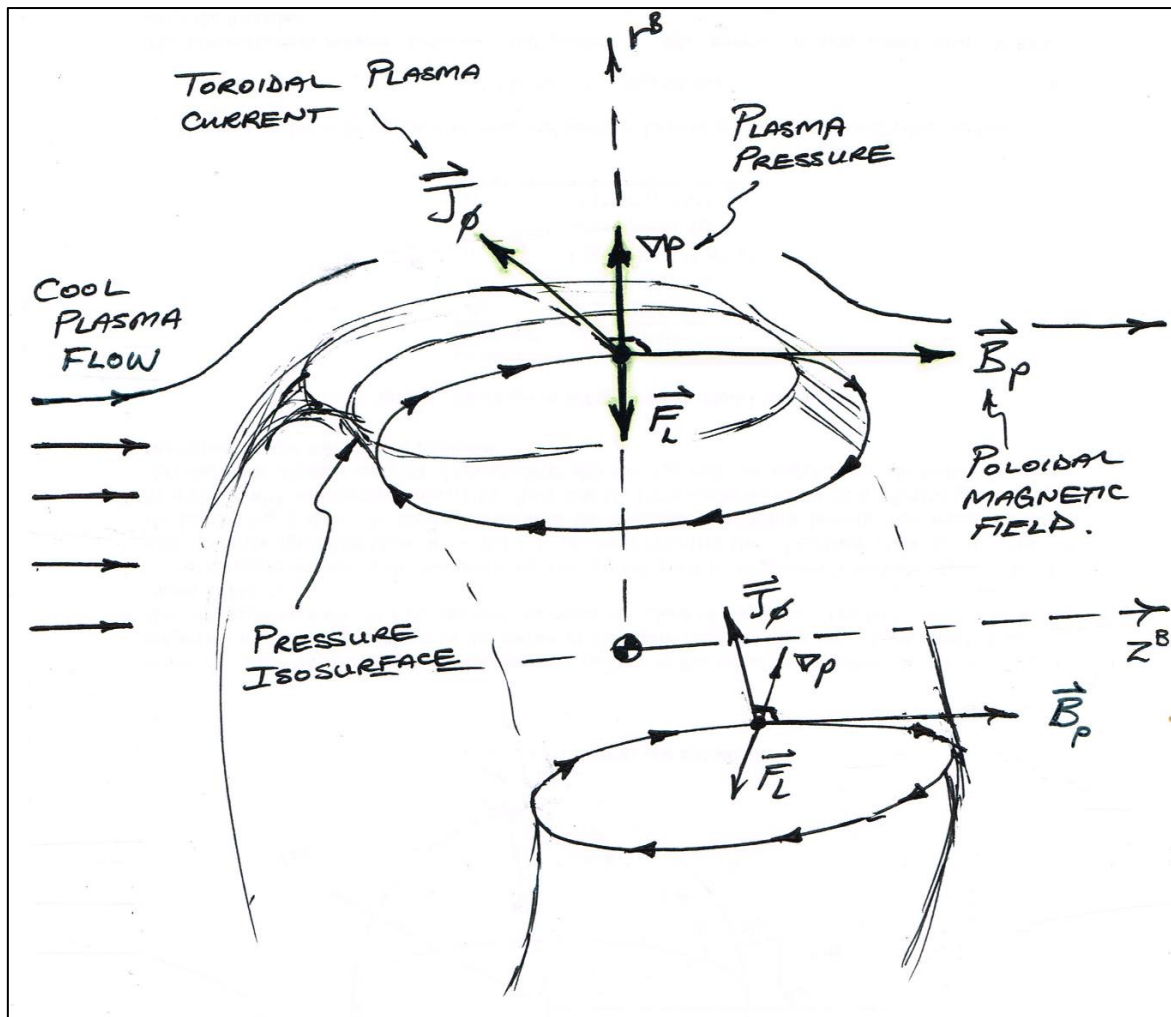 r^B
TOROIDAL PLASMA
CURRENT
PLASMA
PRESSURE
J⃗φ
∇p
COOL
PLASMA
FLOW
B⃗p
F⃗L
POLOIDAL
MAGNETIC
FIELD.
PRESSURE
ISOSURFACE
J⃗φ
∇p
z^B
B⃗p
F⃗L